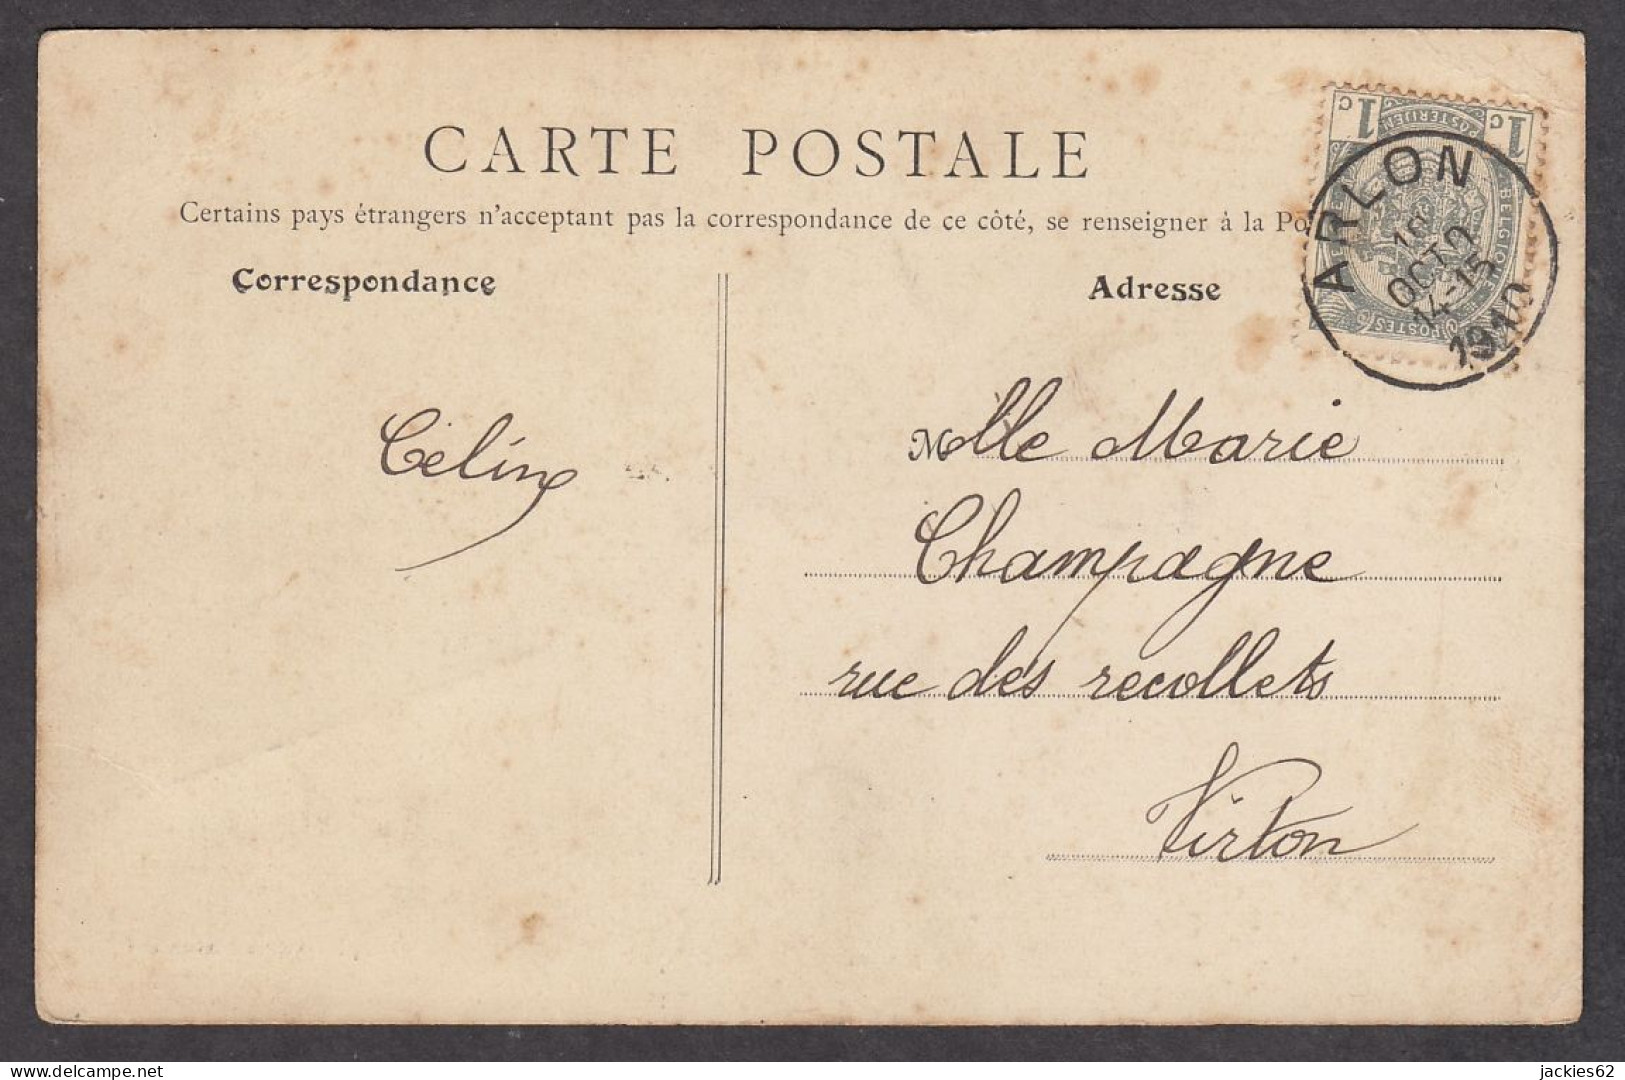 CARTE POSTALE
Certains pays étrangers n'acceptant pas la correspondance de ce côté, se renseigner à la Po
Correspondance
Adresse
1c
1c
POSTERIJEN
BELGIQUE
POSTES
ARLON
OCTO
14-15
1910
Céline
Mlle Marie
Champagne
rue des recollets
Virton
delcampe.net
jackies62